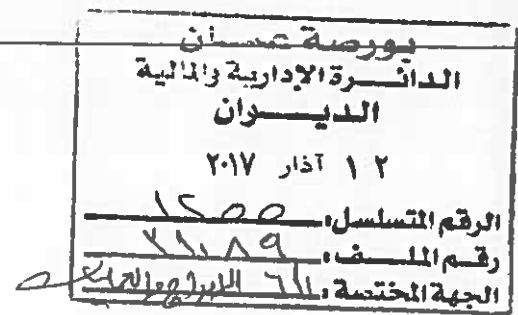 بورصة عمان
الدائرة الإدارية والمالية
الديوان
آذار ٢٠١٧
الرقم المتسلسل: ١٢٥٥
رقم الملف:
الجهة المختصة: